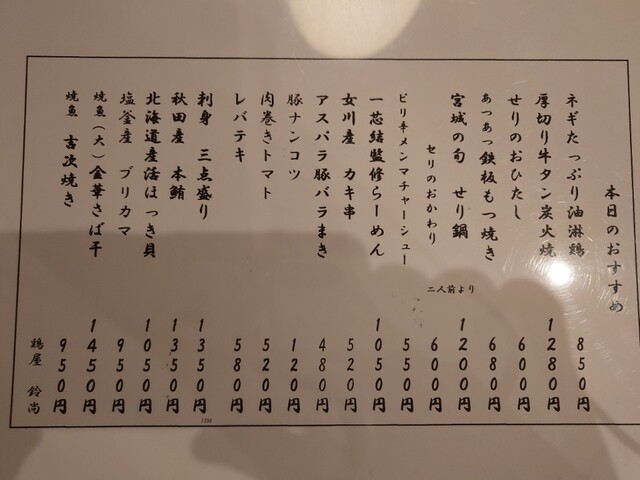 本日のおすすめ
ネギたっぷり油淋鶏 850円
厚切り牛タン炭火焼 1280円
せりのおひたし 600円
あつあつ鉄板もつ焼き 680円
宮城の旬 せり鍋 二人前より 1200円
セリのおかわり 600円
ピリ辛メンマチャーシュー 550円
一芯結監修らーめん 1050円
女川産 カキ串 520円
アスパラ豚バラまき 480円
豚ナンコツ 120円
肉巻きトマト 520円
レバテキ 580円
刺身 三点盛り 1350円
秋田産 本鮪 1350円
北海道産活ほっき貝 1050円
塩釜産 ブリカマ 950円
焼魚(大)金華さば干 1450円
焼魚 吉次焼き 950円
鶏屋 鈴尚